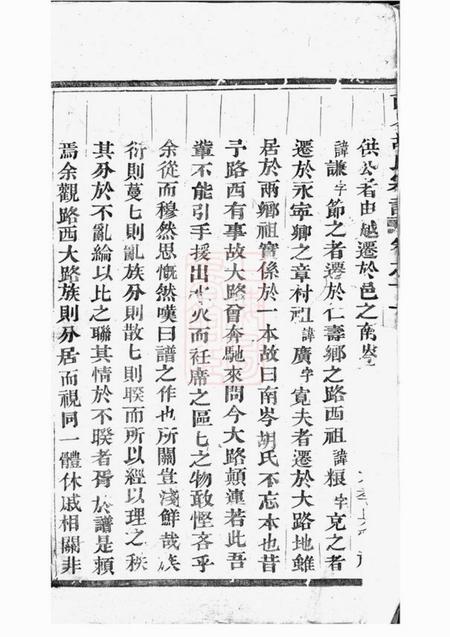 供公者由越遷於邑之南岺
諱謙字節之者遷於仁壽鄉之路西祖諱粮字克之者
遷於永寜鄉之章村祖諱廣字寛夫者遷於大路地雖
居於兩鄉祖實係於一本故曰南岑胡氏不忘本也昔
予路西有事故大路曾奔馳來問今大路顛連若此吾
軰不能引手援出水火而衽席之區匕之物敢慳吝乎
余從而穆然思慨然嘆曰譜之作也所關豈淺鮮哉族
衍則蔓匕則亂族分則散匕則睽而所以經以理之秩
其分於不亂綸以比之聯其情於不睽者胥於譜是頼
焉余觀路西大路族則分居而視同一體休戚相關非